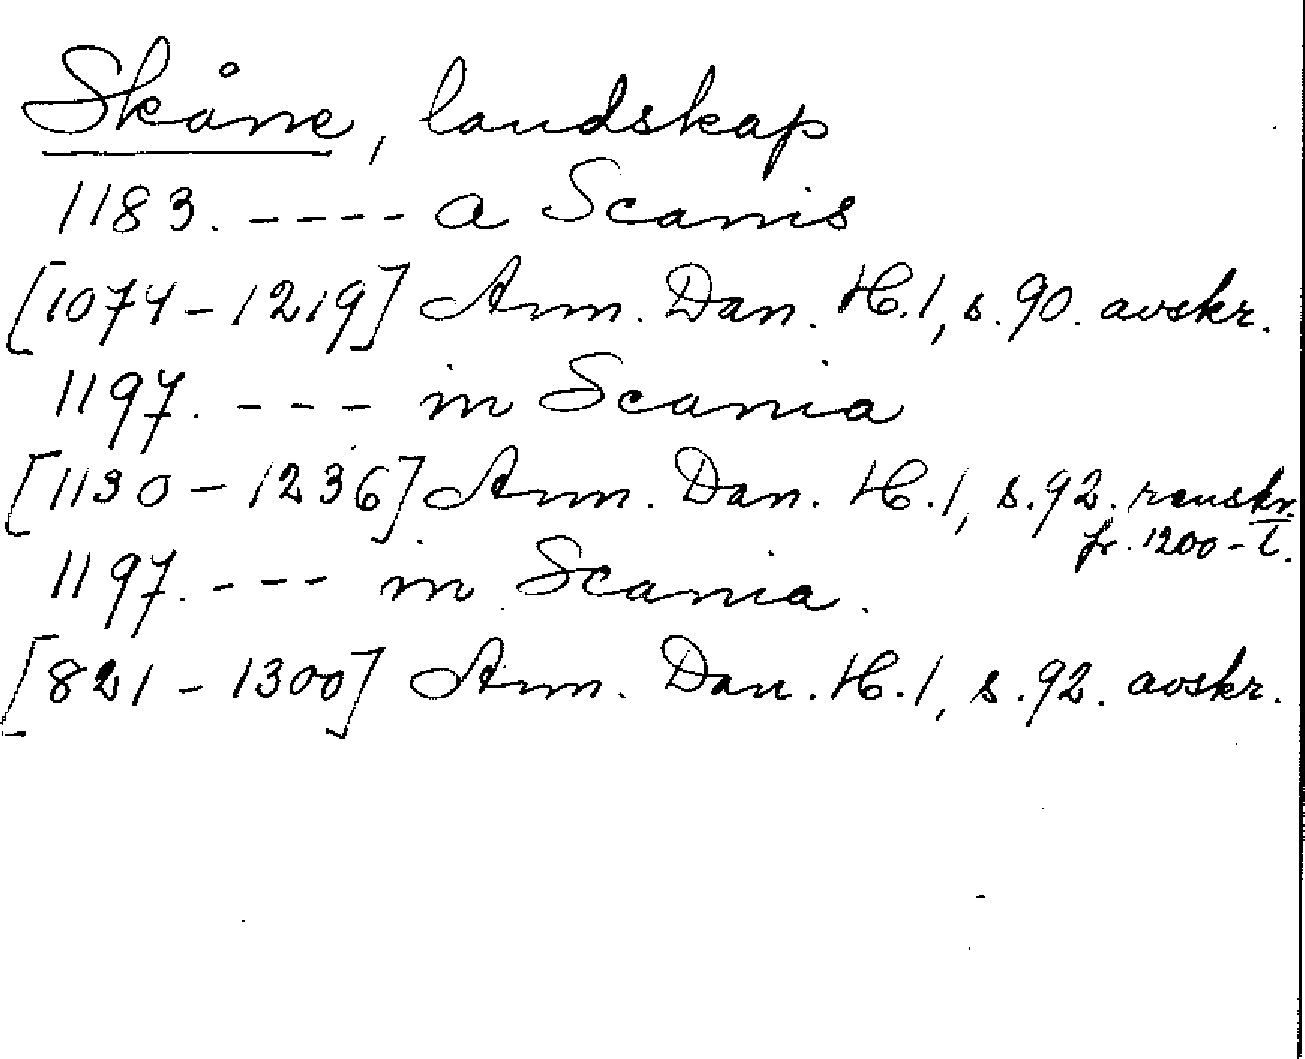 Skåne, landskap
1183. ---- a Scanis
[1074-1219] Ann. Dan. H.1, s. 90. avskr.
1197. --- in Scania
[1130-1236] Ann. Dan. H.1, s. 92. renskr.
fr. 1200-t.
1197. --- in Scania.
[821-1300] Ann. Dan. H.1, s. 92. avskr.